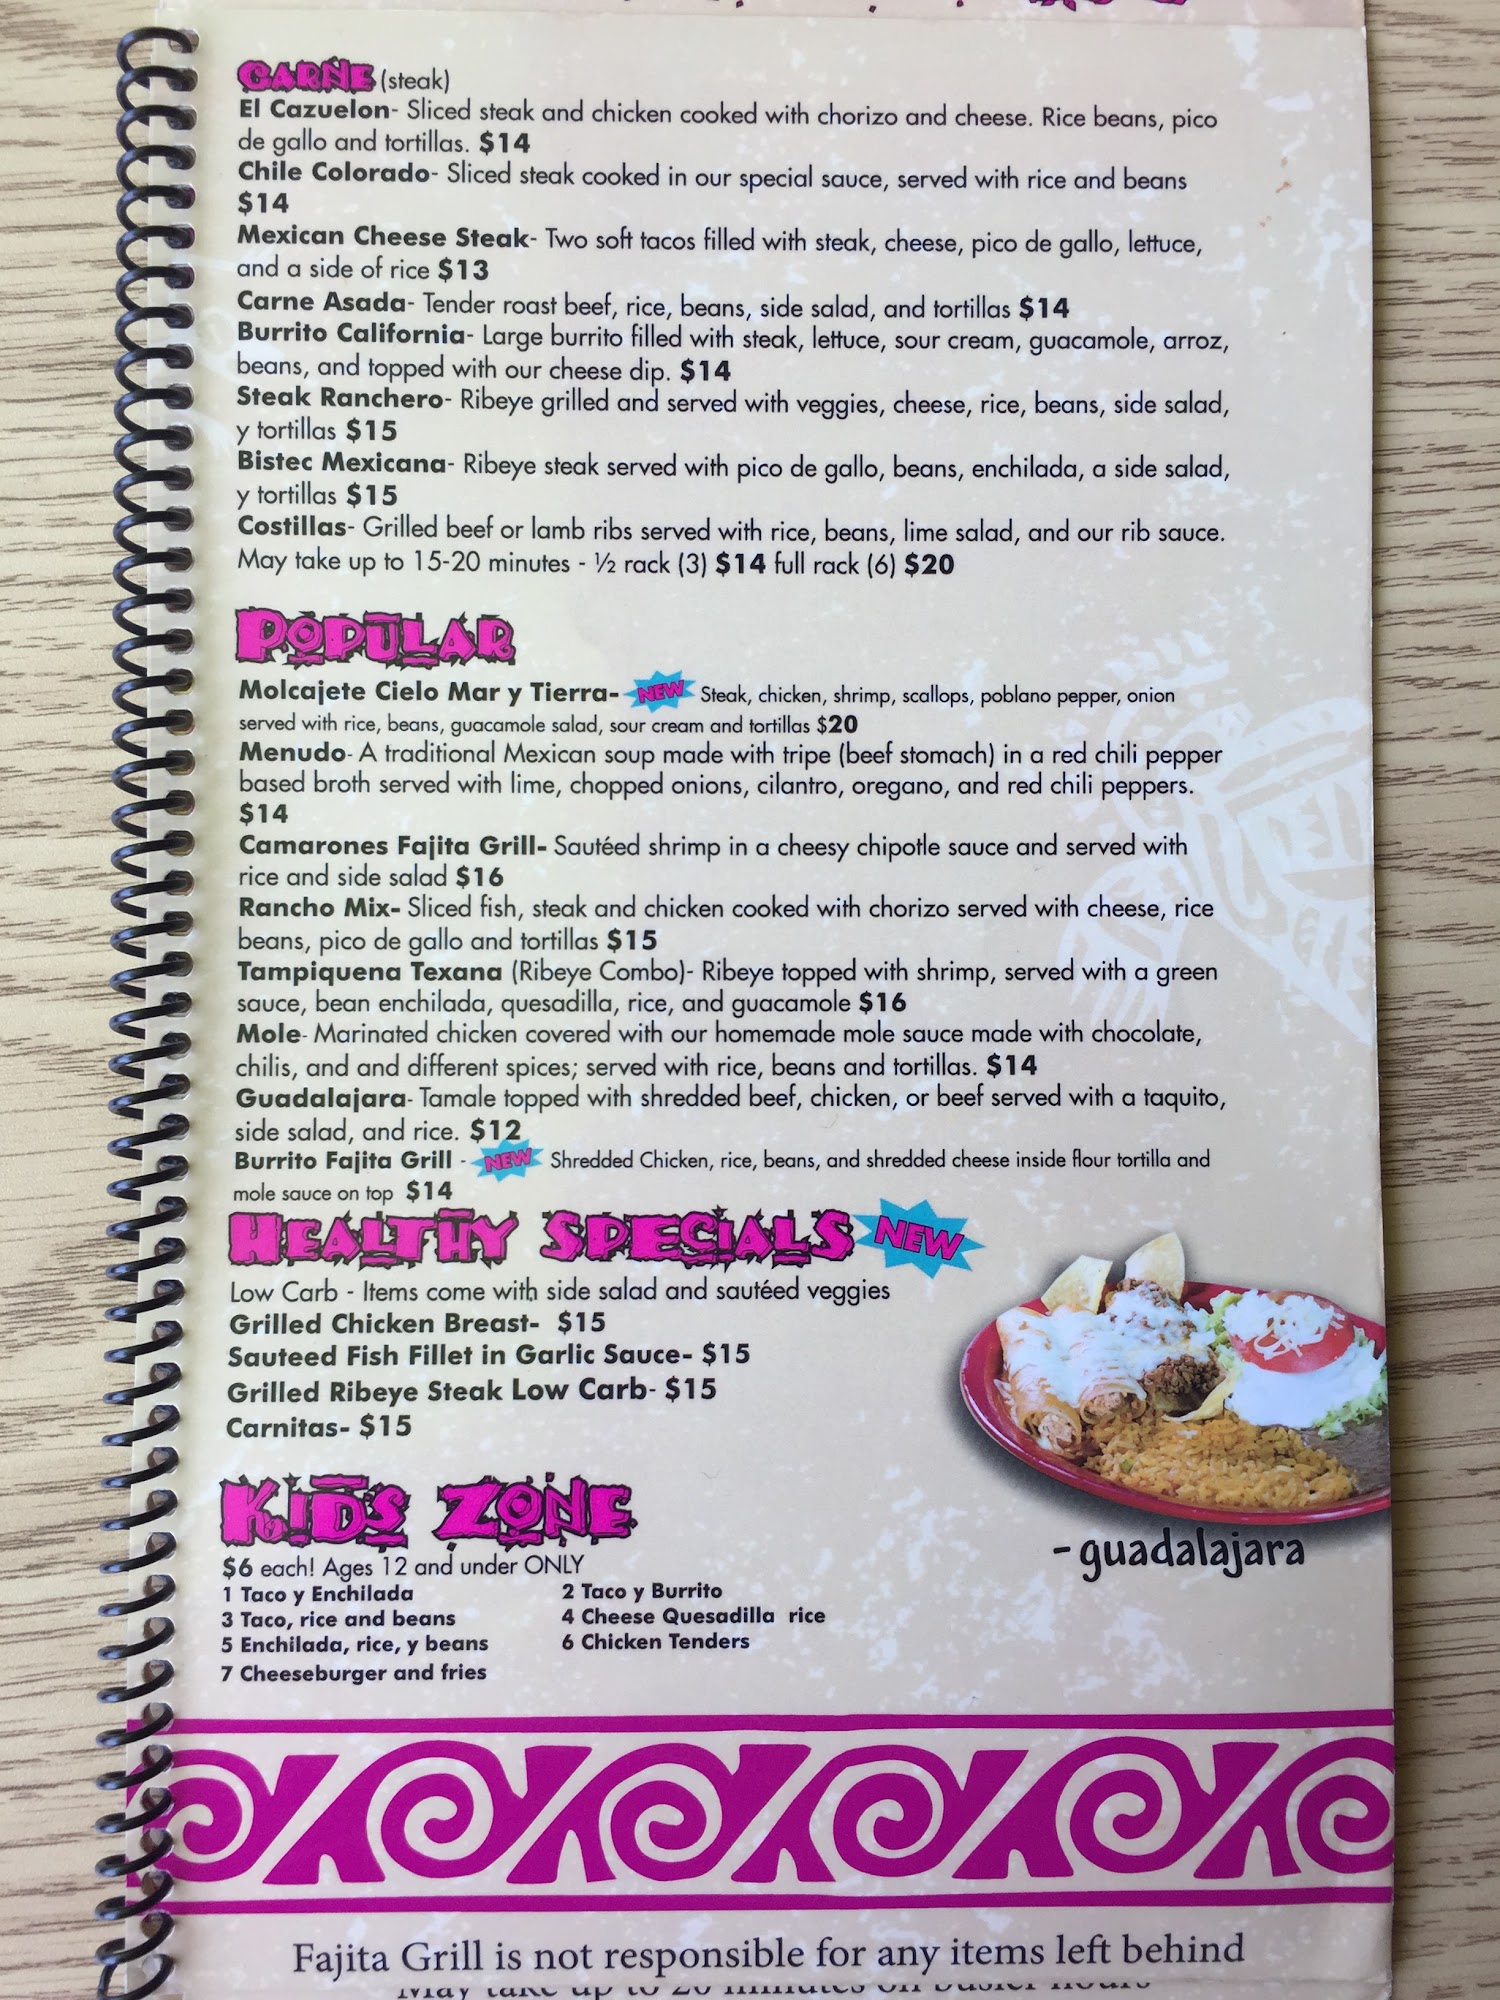 CARNE (steak)
El Cazuelon- Sliced steak and chicken cooked with chorizo and cheese. Rice beans, pico
de gallo and tortillas. $14
Chile Colorado- Sliced steak cooked in our special sauce, served with rice and beans
$14
Mexican Cheese Steak- Two soft tacos filled with steak, cheese, pico de gallo, lettuce,
and a side of rice $13
Carne Asada- Tender roast beef, rice, beans, side salad, and tortillas $14
Burrito California- Large burrito filled with steak, lettuce, sour cream, guacamole, arroz,
beans, and topped with our cheese dip. $14
Steak Ranchero- Ribeye grilled and served with veggies, cheese, rice, beans, side salad,
y tortillas $15
Bistec Mexicana- Ribeye steak served with pico de gallo, beans, enchilada, a side salad,
y tortillas $15
Costillas- Grilled beef or lamb ribs served with rice, beans, lime salad, and our rib sauce.
May take up to 15-20 minutes - ½ rack (3) $14 full rack (6) $20
POPULAR
Molcajete Cielo Mar y Tierra- NEW Steak, chicken, shrimp, scallops, poblano pepper, onion
served with rice, beans, guacamole salad, sour cream and tortillas $20
Menudo- A traditional Mexican soup made with tripe (beef stomach) in a red chili pepper
based broth served with lime, chopped onions, cilantro, oregano, and red chili peppers.
$14
Camarones Fajita Grill- Sautéed shrimp in a cheesy chipotle sauce and served with
rice and side salad $16
Rancho Mix- Sliced fish, steak and chicken cooked with chorizo served with cheese, rice
beans, pico de gallo and tortillas $15
Tampiquena Texana (Ribeye Combo)- Ribeye topped with shrimp, served with a green
sauce, bean enchilada, quesadilla, rice, and guacamole $16
Mole- Marinated chicken covered with our homemade mole sauce made with chocolate,
chilis, and and different spices; served with rice, beans and tortillas. $14
Guadalajara- Tamale topped with shredded beef, chicken, or beef served with a taquito,
side salad, and rice. $12
Burrito Fajita Grill - NEW Shredded Chicken, rice, beans, and shredded cheese inside flour tortilla and
mole sauce on top $14
HEALTHY SPECIALS NEW
Low Carb - Items come with side salad and sautéed veggies
Grilled Chicken Breast- $15
Sauteed Fish Fillet in Garlic Sauce- $15
Grilled Ribeye Steak Low Carb- $15
Carnitas- $15
-guadalajara
KIDS ZONE
$6 each! Ages 12 and under ONLY
1 Taco y Enchilada 2 Taco y Burrito
3 Taco, rice and beans 4 Cheese Quesadilla rice
5 Enchilada, rice, y beans 6 Chicken Tenders
7 Cheeseburger and fries
Fajita Grill is not responsible for any items left behind
May take up to 20 minutes on busier hours